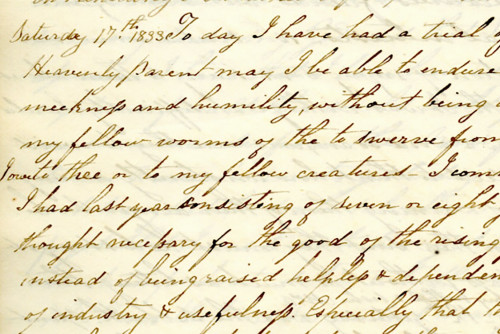 Saturday 17.th 1833 To day I have had a trial of
Heavenly Parent may I be able to endure
meekness and humility, without being
my fellow worms of the to swerve from
I owe to thee or to my fellow creatures - I com
I had last year consisting of seven or eight
thought necessary for the good of the rising
instead of being raised helpless & dependen
of industry & usefulness. Especially that